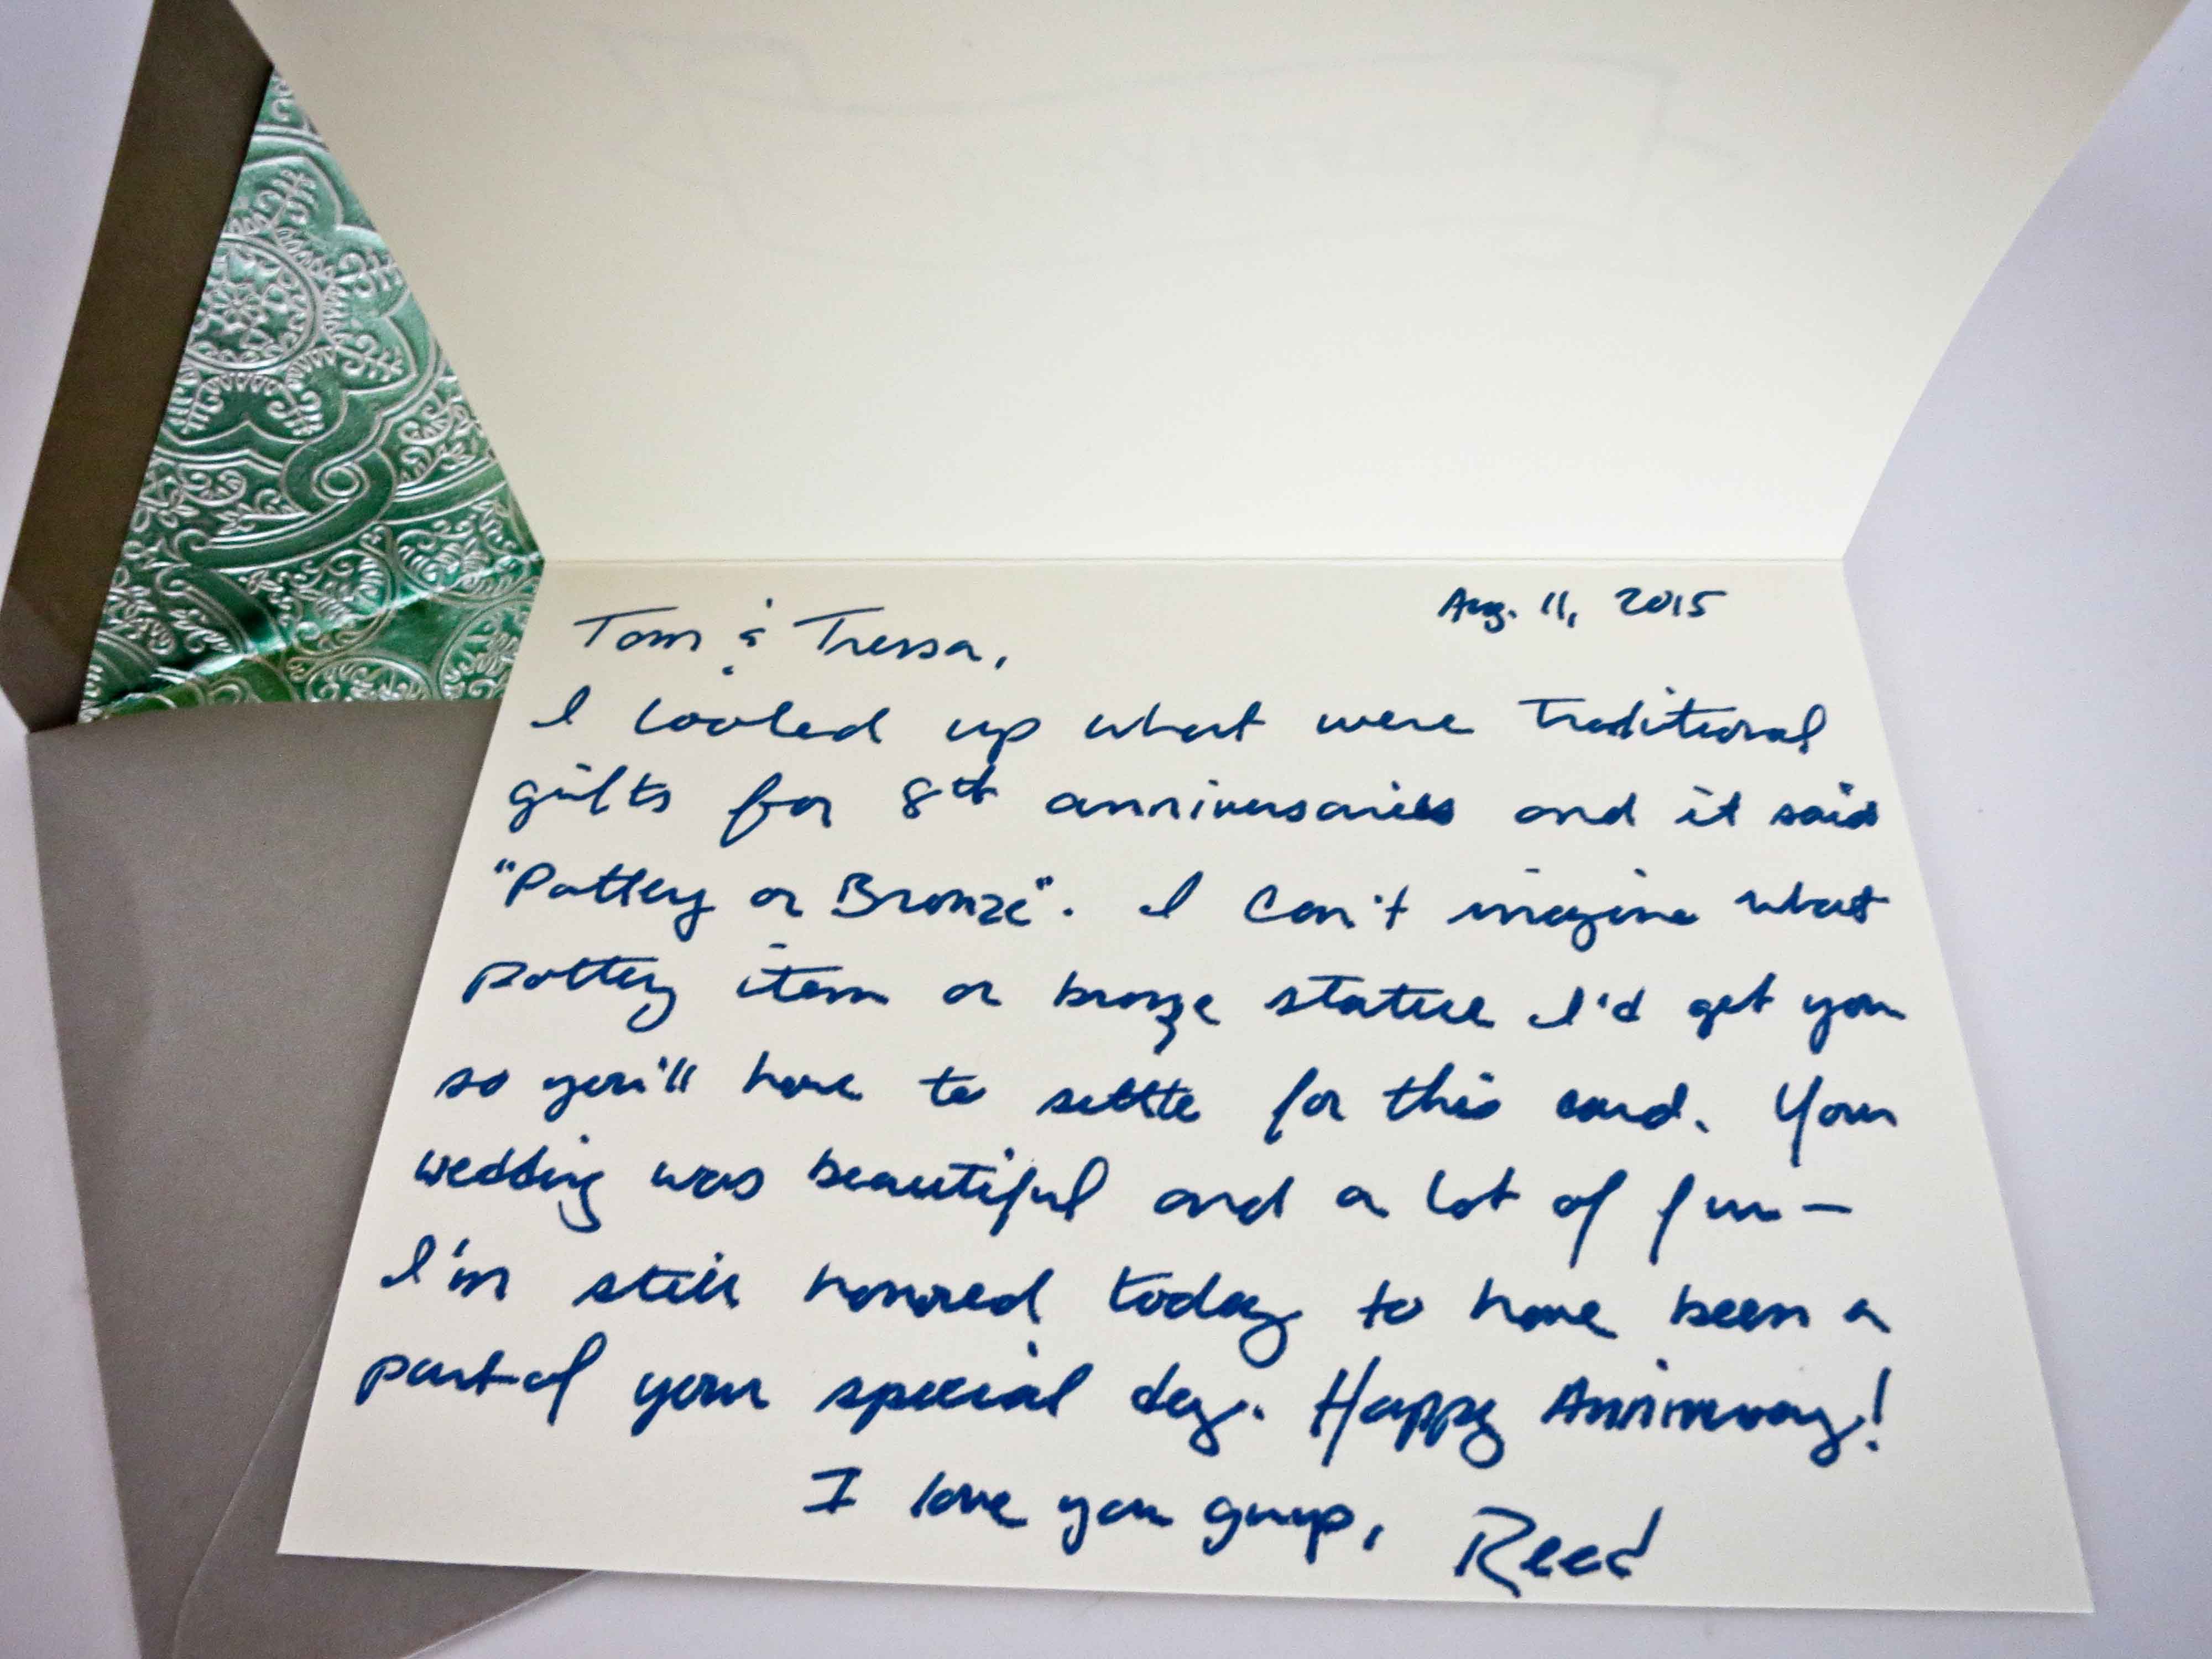 Aug. 11, 2015
Tom & Tressa,
I looked up what were traditional
gifts for 8th anniversaries and it said
"Pottery or Bronze". I can't imagine what
pottery item or bronze statue I'd get you
so you'll have to settle for this card. Your
wedding was beautiful and a lot of fun—
I'm still honored today to have been a
part of your special day. Happy Anniversary!
I love you guys, Reed